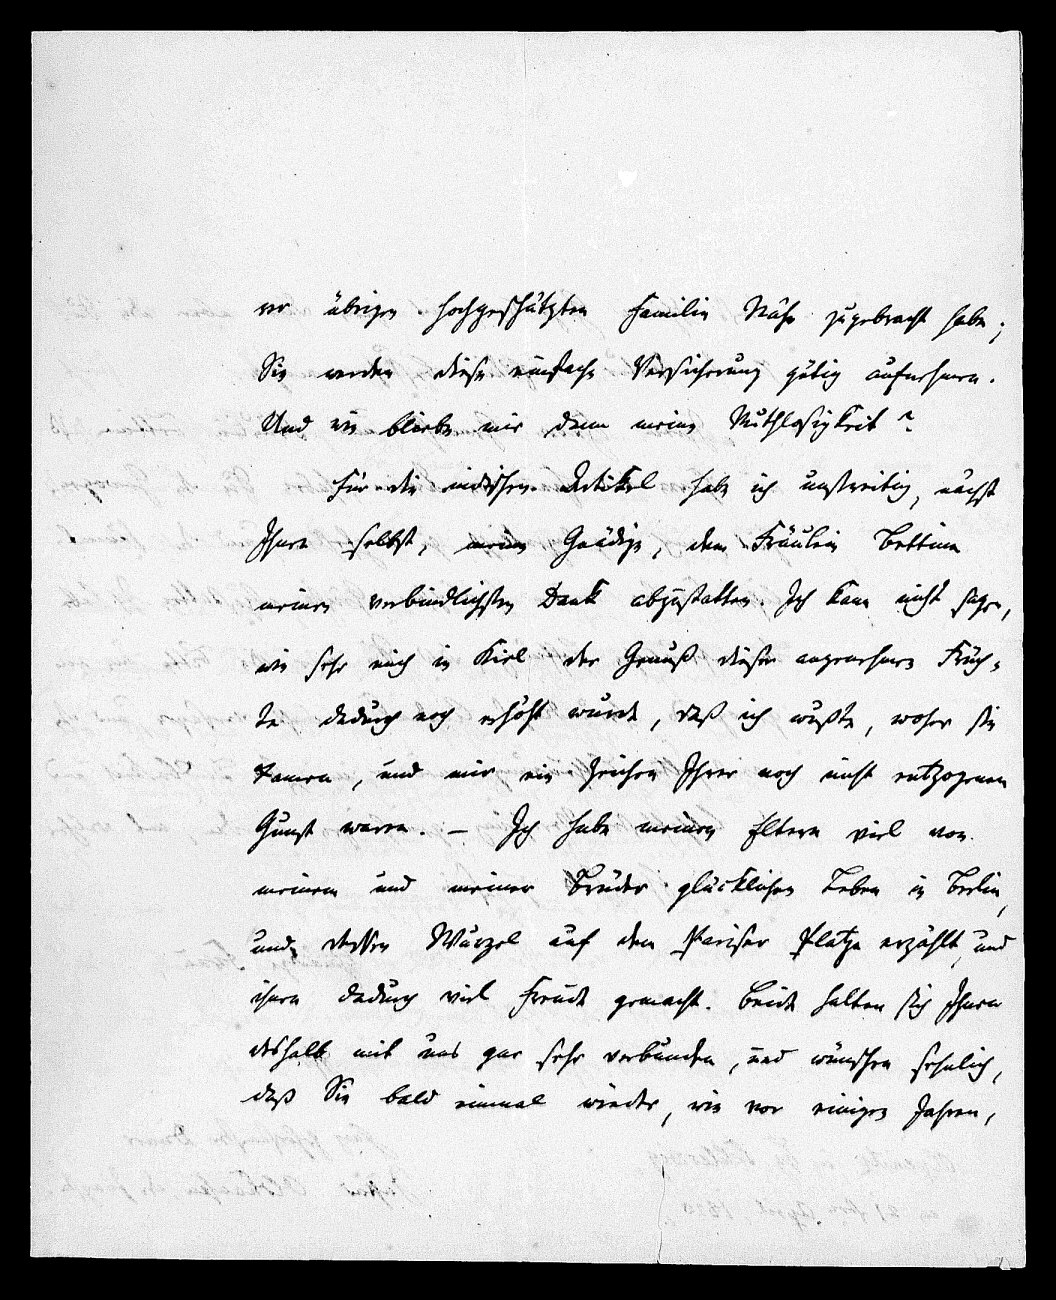 rer übrigen hochgeschätzten Familie Nähe zugebracht habe;
Sie werden diese einfache Versicherung gütig aufnehmen.
Und wie bliebe mir denn meine Muthlosigkeit?
Für die indischen Artikel habe ich unstreitig, nächst
Ihnen selbst, meine Gnädige, dem Fräulein Bettina
meinen verbindlichsten Dank abzustatten. Ich kann nicht sagen,
wie sehr mich in Kiel der Genuß dieser angenehmen Früch-
te dadurch noch erhöht wurde, daß ich wußte, woher sie
kamen, und mir ein Zeichen Ihrer noch nicht entzogenen
Gunst waren. – Ich habe meinen Eltern viel von
meinem und meiner Brüder glücklichen Leben in Berlin,
und dessen Wurzel auf dem Pariser Platze erzählt, und
ihnen dadurch viel Freude gemacht. Beide halten sich Ihnen
deshalb mit uns gar sehr verbunden, und wünschen sehnlich,
daß Sie bald einmal wieder, wie vor einigen Jahren,